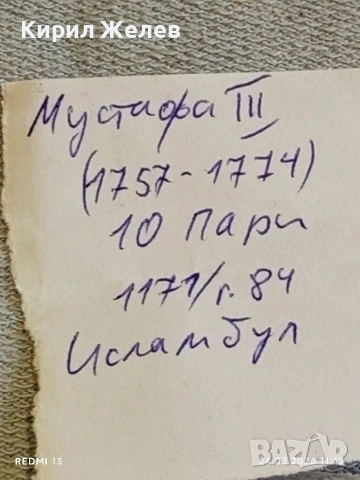 Кирил Желев
Мустафа III
(1757-1774)
10 Пари
1171/г. 84
Ислямбул
REDMI 13
BAZAR